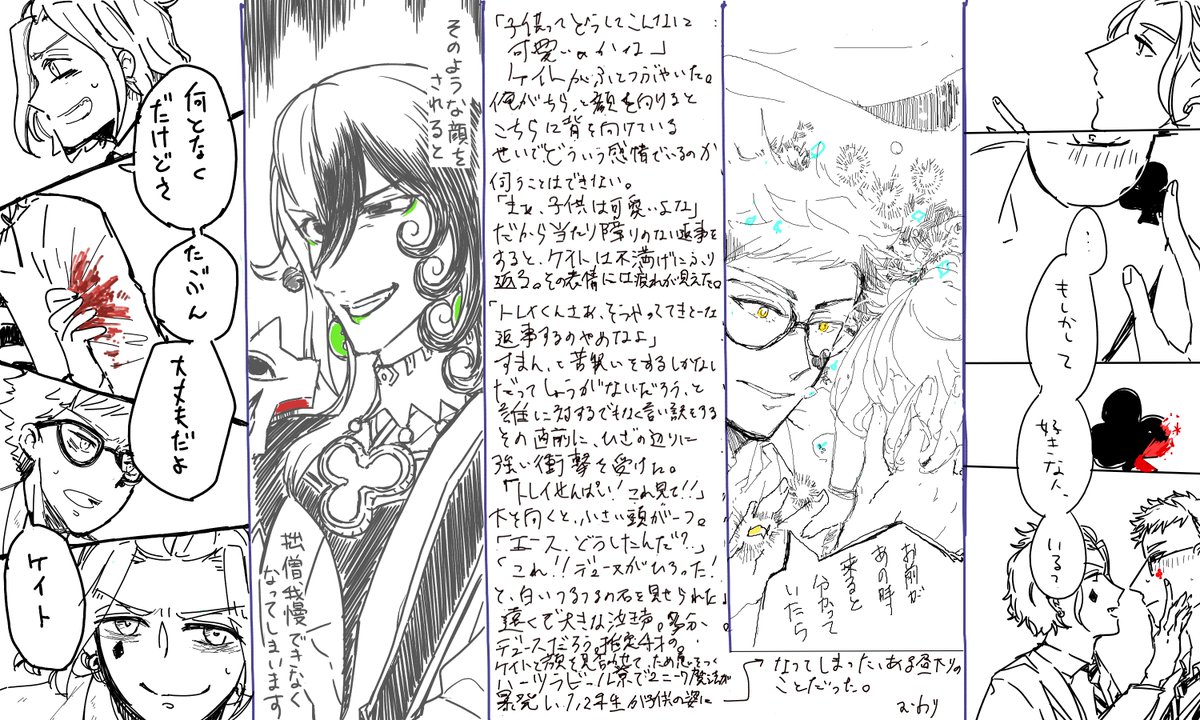 何となく
だけどさ
たぶん
大丈夫だよ
ケイト
そのような顔を
されると
拙僧、我慢できなく
なってしまいます
「子供ってどうしてこんなに
可愛いのかね」
ケイトがふとつぶやいた。
俺がちらっと顔を向けると
こちらに背を向けている
せいでどういう感情でいるのか
伺うことはできない。
「まぁ、子供は可愛いよな」
だから当たり障りのない返事を
すると、ケイトは不満げにふり
返る。その表情には疲れが見えた。
「トレイくんさあ、そうやっててきとーな
返事するのやめなよ」
すまん、と苦笑いをするしかない
だってしょうがないだろう、と
誰に対するでもなく言い訳をする
その直前に、ひざの辺りに
強い衝撃を受けた。
「トレイせんぱい！これ見て!!」
下を向くと、小さい頭が一つ。
「エース、どうしたんだ?」
「これ!!デュースがひろった!
と、白いつるつるの石を見せられた」
遠くで大きな泣き声。多分、
デュースだろう。推定4才の。
ケイトと顔を見合わせて、ため息をつく
ハーツラビュル寮でユニーク魔法が
暴発し、1,2年生が子供の姿に
→なってしまった、ある昼下りの
ことだった。
おわり
お前が
あの時
来ると
分かって
いたら
…
もしかして
好きな人、
いる?